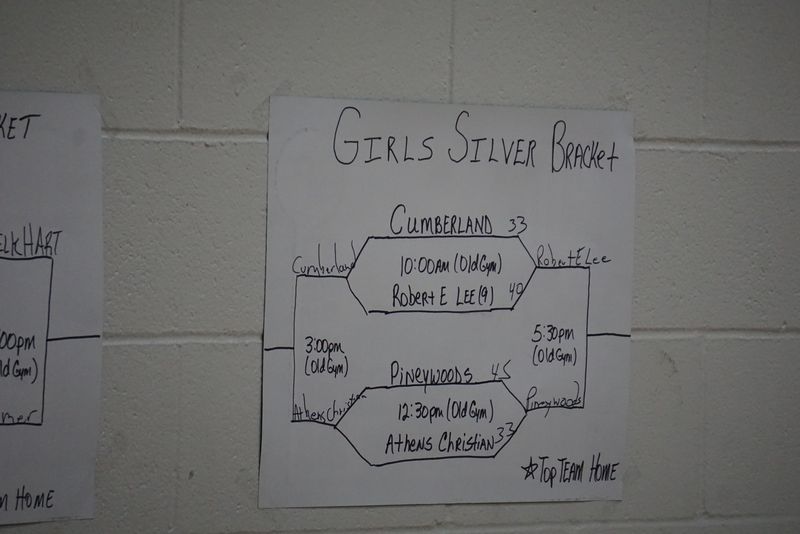 KET
ELKHART
00pm
ld Gym)
mer
m HOME
GIRLS SILVER BRACKet
CUMBERLAND 33
Cumberland
Robert E Lee
10:00AM (Old Gym)
ROBERT E LEE (9) 40
3:00pm
(Old Gym)
5:30pm
(Old Gym)
PINEYWOODS 45
Athens Christian
Pineywoods
12:30pm (Old Gym)
AtHeNS CHRISTIAN 33
☆TOP TEAM HOME